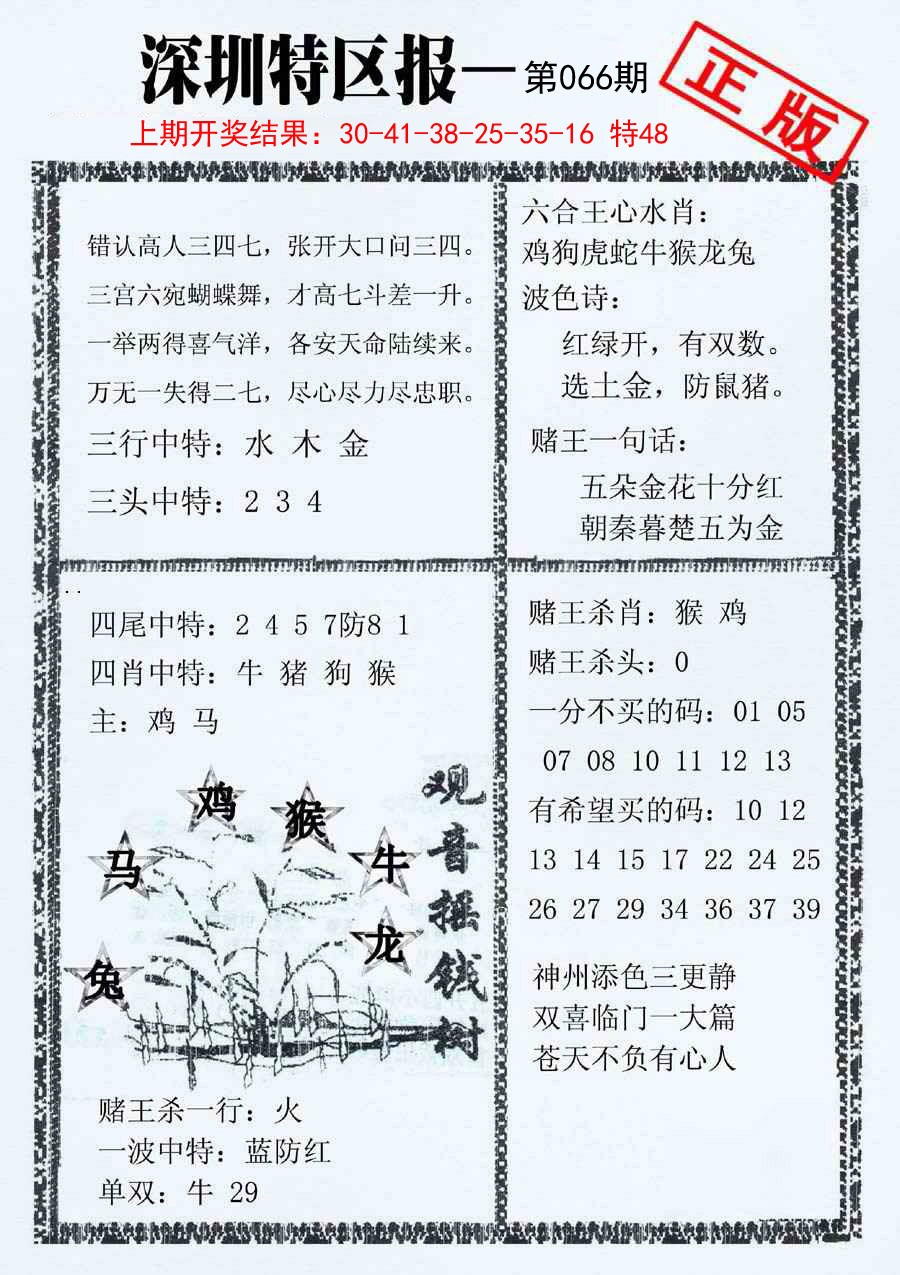 深圳特区报—第066期
正版
上期开奖结果：30-41-38-25-35-16 特48
错认高人三四七，张开大口问三四。
三宫六宛蝴蝶舞，才高七斗差一升。
一举两得喜气洋，各安天命陆续来。
万无一失得二七，尽心尽力尽忠职。
三行中特：水 木 金
三头中特：2 3 4
六合王心水肖：
鸡狗虎蛇牛猴龙兔
波色诗：
红绿开，有双数。
选土金，防鼠猪。
赌王一句话：
五朵金花十分红
朝秦暮楚五为金
四尾中特：2 4 5 7防8 1
四肖中特：牛 猪 狗 猴
主：鸡 马
鸡
猴
马
牛
龙
兔
观音摇钱树
赌王杀一行：火
一波中特：蓝防红
单双：牛 29
赌王杀肖：猴 鸡
赌王杀头：0
一分不买的码：01 05
07 08 10 11 12 13
有希望买的码：10 12
13 14 15 17 22 24 25
26 27 29 34 36 37 39
神州添色三更静
双喜临门一大篇
苍天不负有心人